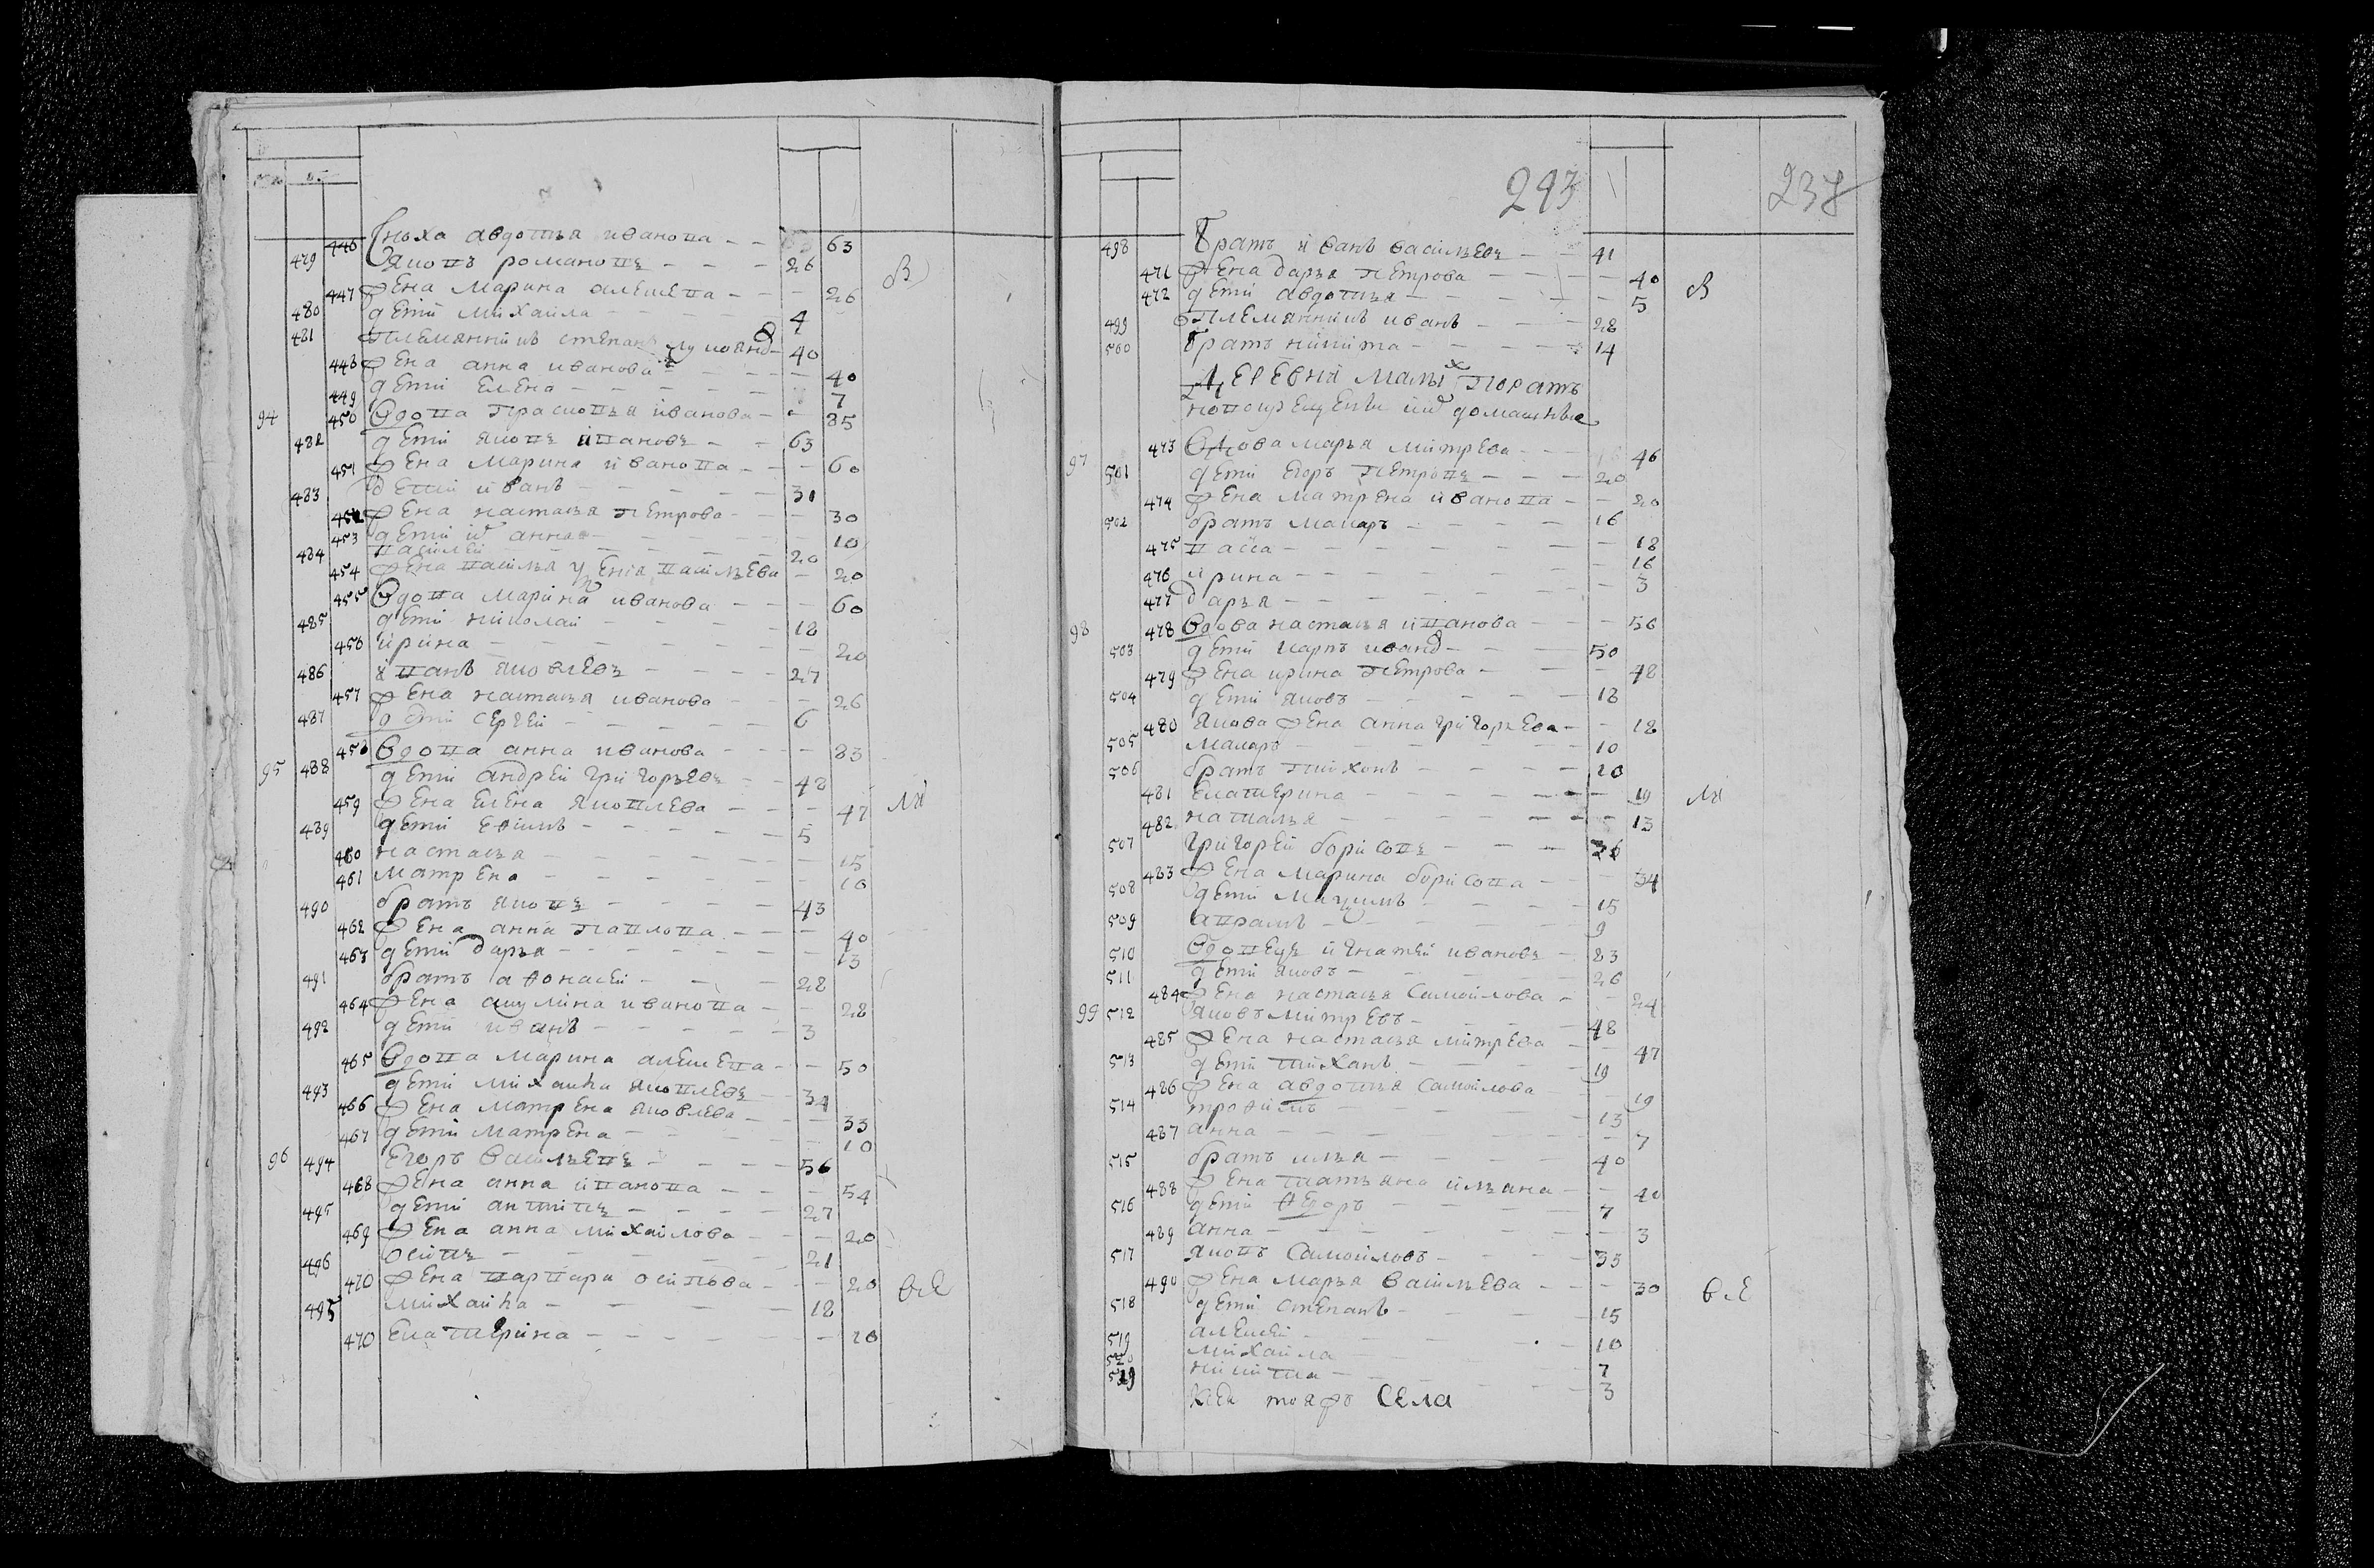 446 Сноха авдотья иванова — — 63
479 Яковъ романовъ — — — 26
447 Жена марина алекѣева — — 26
480 дети михайла — — — 4
481 племянникъ степанъ — 40
448 Жена анна иванова — — 40
449 дети елена — — — 7
94 450 Вдова прасковья иванова — 85
482 дети яковъ ивановъ — — 63
451 Жена марина иванова — — 60
483 дети иванъ — — — 31
452 Жена настасья петрова — — 30
453 дети анна — — — 10
484 василей — — — 20
454 Жена васильева — 20
455 Вдова марина иванова — — 60
485 дети николай — — — 18
456 ирина — — — 20
486 иванъ яковлевъ — — — 27
457 Жена настасья иванова — — 26
487 дети сергей — — — 6
458 Вдова анна иванова — — — 83
95 488 дети андрей григорьевъ — — 48
459 Жена елена яковлева — — — 47
489 дети ефимъ — — — 5
460 настасья — — — 15
461 матрена — — — 10
490 братъ яковъ — — — 43
462 Жена анна павлова — — — 40
463 дети дарья — — — 13
491 братъ афонасей — — — 28
464 Жена акулина иванова — — 28
492 дети иванъ — — — 3
465 Вдова марина алекѣева — — 50
493 дети михайла яковлевъ — — 34
466 Жена матрена яковлева — — 33
467 дети матрена — — — 10
96 494 Егоръ васильевъ — — — 56
468 Жена анна иванова — — — 54
495 дети антипъ — — — 27
469 Жена анна михайлова — — — 20
496 осипъ — — — 21
470 Жена варвара осипова — — — 20
495 михайла — — — 18
470 Екатерина — — — 10
293
237
498 Братъ иванъ васильевъ — — 41
471 Жена дарья петрова — — — 40
472 дети авдотья — — — 5
499 племянникъ иванъ — — — 28
500 братъ никита — — — 14
Деревни малых порать
новокрещены домашные
97 473 Вдова марья митрева — — 46
501 дети егоръ петровъ — — — 20
474 Жена матрена иванова — — 20
502 братъ макаръ — — — 16
475 васса — — — 18
476 ирина — — — 16
477 дарья — — — 3
98 478 Вдова настасья иванова — — 56
503 дети карпъ иванъ — — 50
479 Жена ирина петрова — — 48
504 дети яковъ — — — 18
480 якова Жена анна григорьева — 18
505 макаръ — — — 10
506 братъ тихонъ — — — 20
481 Екатерина — — — 19
482 наталья — — — 13
507 григорей борисовъ — — — 36
483 Жена марина борисова — — 34
508 дети максимъ — — — 15
509 аврамъ — — — 9
510 Вдовецъ игнатей ивановъ — 83
511 дети яковъ — — — 26
484 Жена настасья самойлова — — 24
99 512 яковъ митревъ — — — 48
485 Жена настасья митрева — — 47
513 дети тиханъ — — — 19
486 Жена авдотья самойлова — 19
514 трофимъ — — — 13
487 анна — — — 7
515 братъ илья — — — 40
488 Жена татьяна ильина — — 40
516 дети федоръ — — — 7
489 анна — — — 3
517 яковъ самойловъ — — — 33
490 Жена марья васильева — — — 30
518 дети степанъ — — — 15
519 алексей — — — 10
520 михайла — — — 7
никита — — — 3
тояжъ села